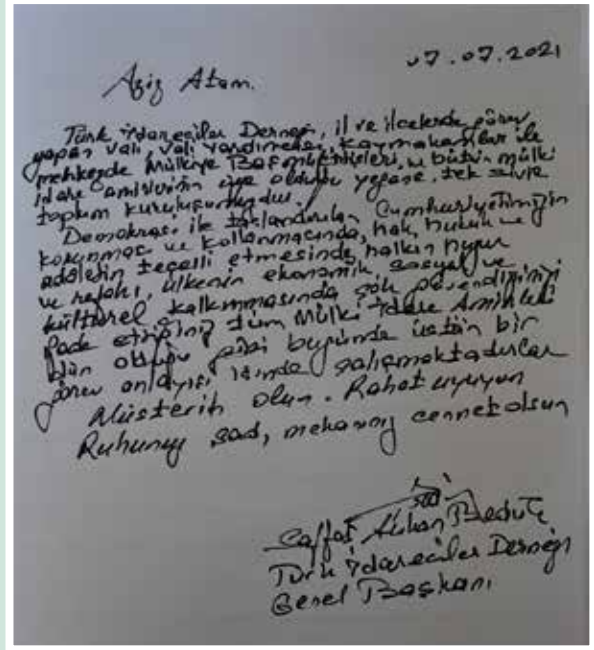 07.07.2021
Aziz Atam.
Türk İdareciler Derneği, il ve ilçelerde görev
yapan vali, vali yardımcıları, kaymakamlar ile
merkezde Mülkiye Başmüfettişleri, bütün mülki
idare amirlerinin üye olduğu yegane, tek sivil
toplum kuruluşumuzdur.
Demokrasi ile taçlandırılan Cumhuriyetimizin
korunması ve kollanmasında, hak, hukuk ve
adaletin tecelli etmesinde, halkın huzur
ve refahı, ülkenin ekonomik, sosyal ve
kültürel kalkınmasında çok güvendiğinizi
ifade ettiğiniz tüm Mülki İdare Amirleri
dün olduğu gibi bugünde üstün bir
görev anlayışı içinde çalışmaktadırlar
Müsterih olun. Rahat uyuyun
Ruhunuz şad, mekanınız cennet olsun
Saffet Arıkan Bedük
Türk İdareciler Derneği
Genel Başkanı